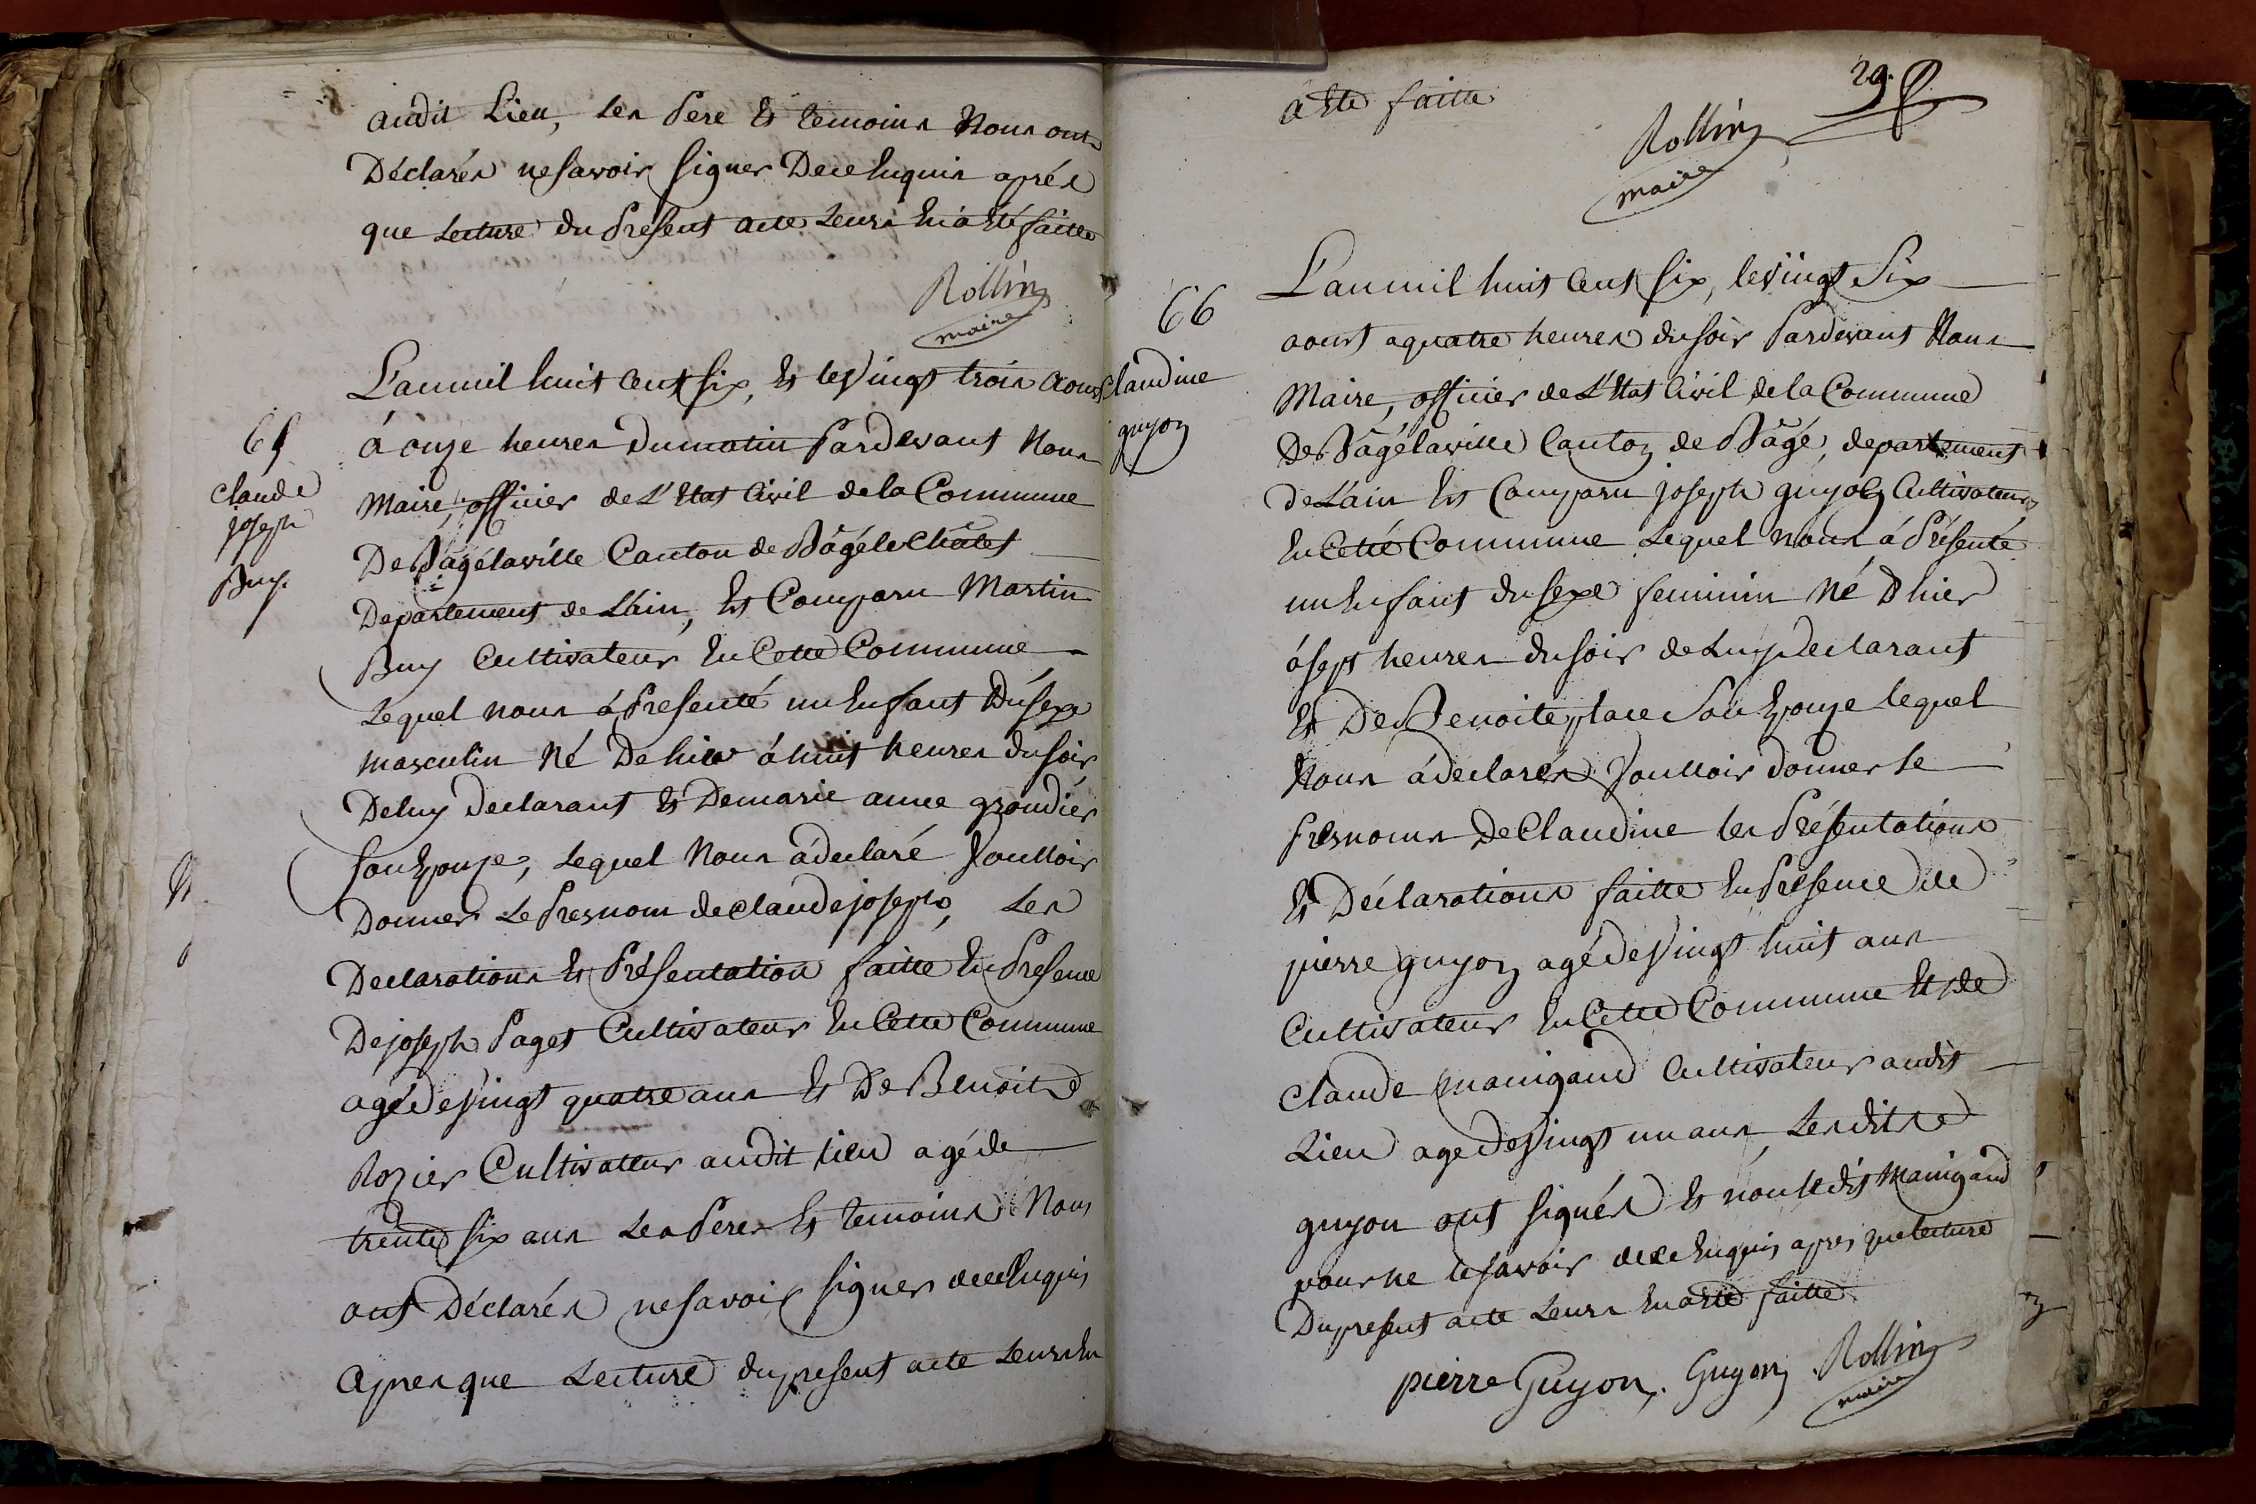 audit Lieu, Les Pere Et temoins Nous ont
Déclarés ne Savoir Signer De ce Enquis aprés
que Lecture du Present acte Leurs En à Eté faitte
Rollin
maire
L'an mil huit Cent Six, Et le Vingt trois Aoust
65
à onze heures du matin Pardevant Nous
Claude
joseph
Buy.
Maire, officier de L'Etat Civil de la Commune
De Bâgélaville Canton de Bâgéle Châtel
Departement de L'ain, Est Comparu Martin
Buy Cultivateur En Cette Commune
Lequel nous à Presenté un Enfant Du Sexe
masculin Né De hier à huit heures du Soir
De luy Declarant Et De marie anne grondier
Son Epouze, Lequel Nous à declaré Voulloir
Donner Le Presnom de claude joseph, Les
Declarations Et Présentation faitte En Presence
De joseph Paget Cultivateur En Cette Commune
agé de Vingt quatre ans Et De Benoit
Rozier Cultivateur audit lieu agé de
trente Six ans Les Peres Et temoins Nous
ont Déclarés ne Savoir Signer de ce Enquis
Apres que Lecture du present acte Leurs En
29.
à Eté faitte
Rollin
maire
66
Claudine
guyon
L'an mil huit Cent Six, le Vingt Six
aoust a quatre heures du Soir Pardevant Nous
Maire, officier de L'Etat Civil de la Commune
De Bâgélaville Canton de Bâgé, departement
de L'ain Est Comparu joseph guyon Cultivateur
En Cette Commune Lequel Nous à Présenté
un Enfant du Sexe feminin Né D hier
à Sept heures du Soir de Luy Declarant
Et De Benoite place Son Epouze lequel
Nous à declarés Voulloir donner le
Presnoms De Claudine les Présentations
Et Déclarations faitte En Présence de
pierre guyon agé de Vingt huit ans
Cultivateur En Cette Commune Et de
Claude mainigaud Cultivateur audit
Lieu age de Vingt un ans, Les dits
guyon ont Signés Et non le dit Mainigaud
pour ne le Savoir de ce Enquis apres que lecture
Du present acte Leurs En a Eté faitte.
pierre Guyon. Guyon Rollin
maire